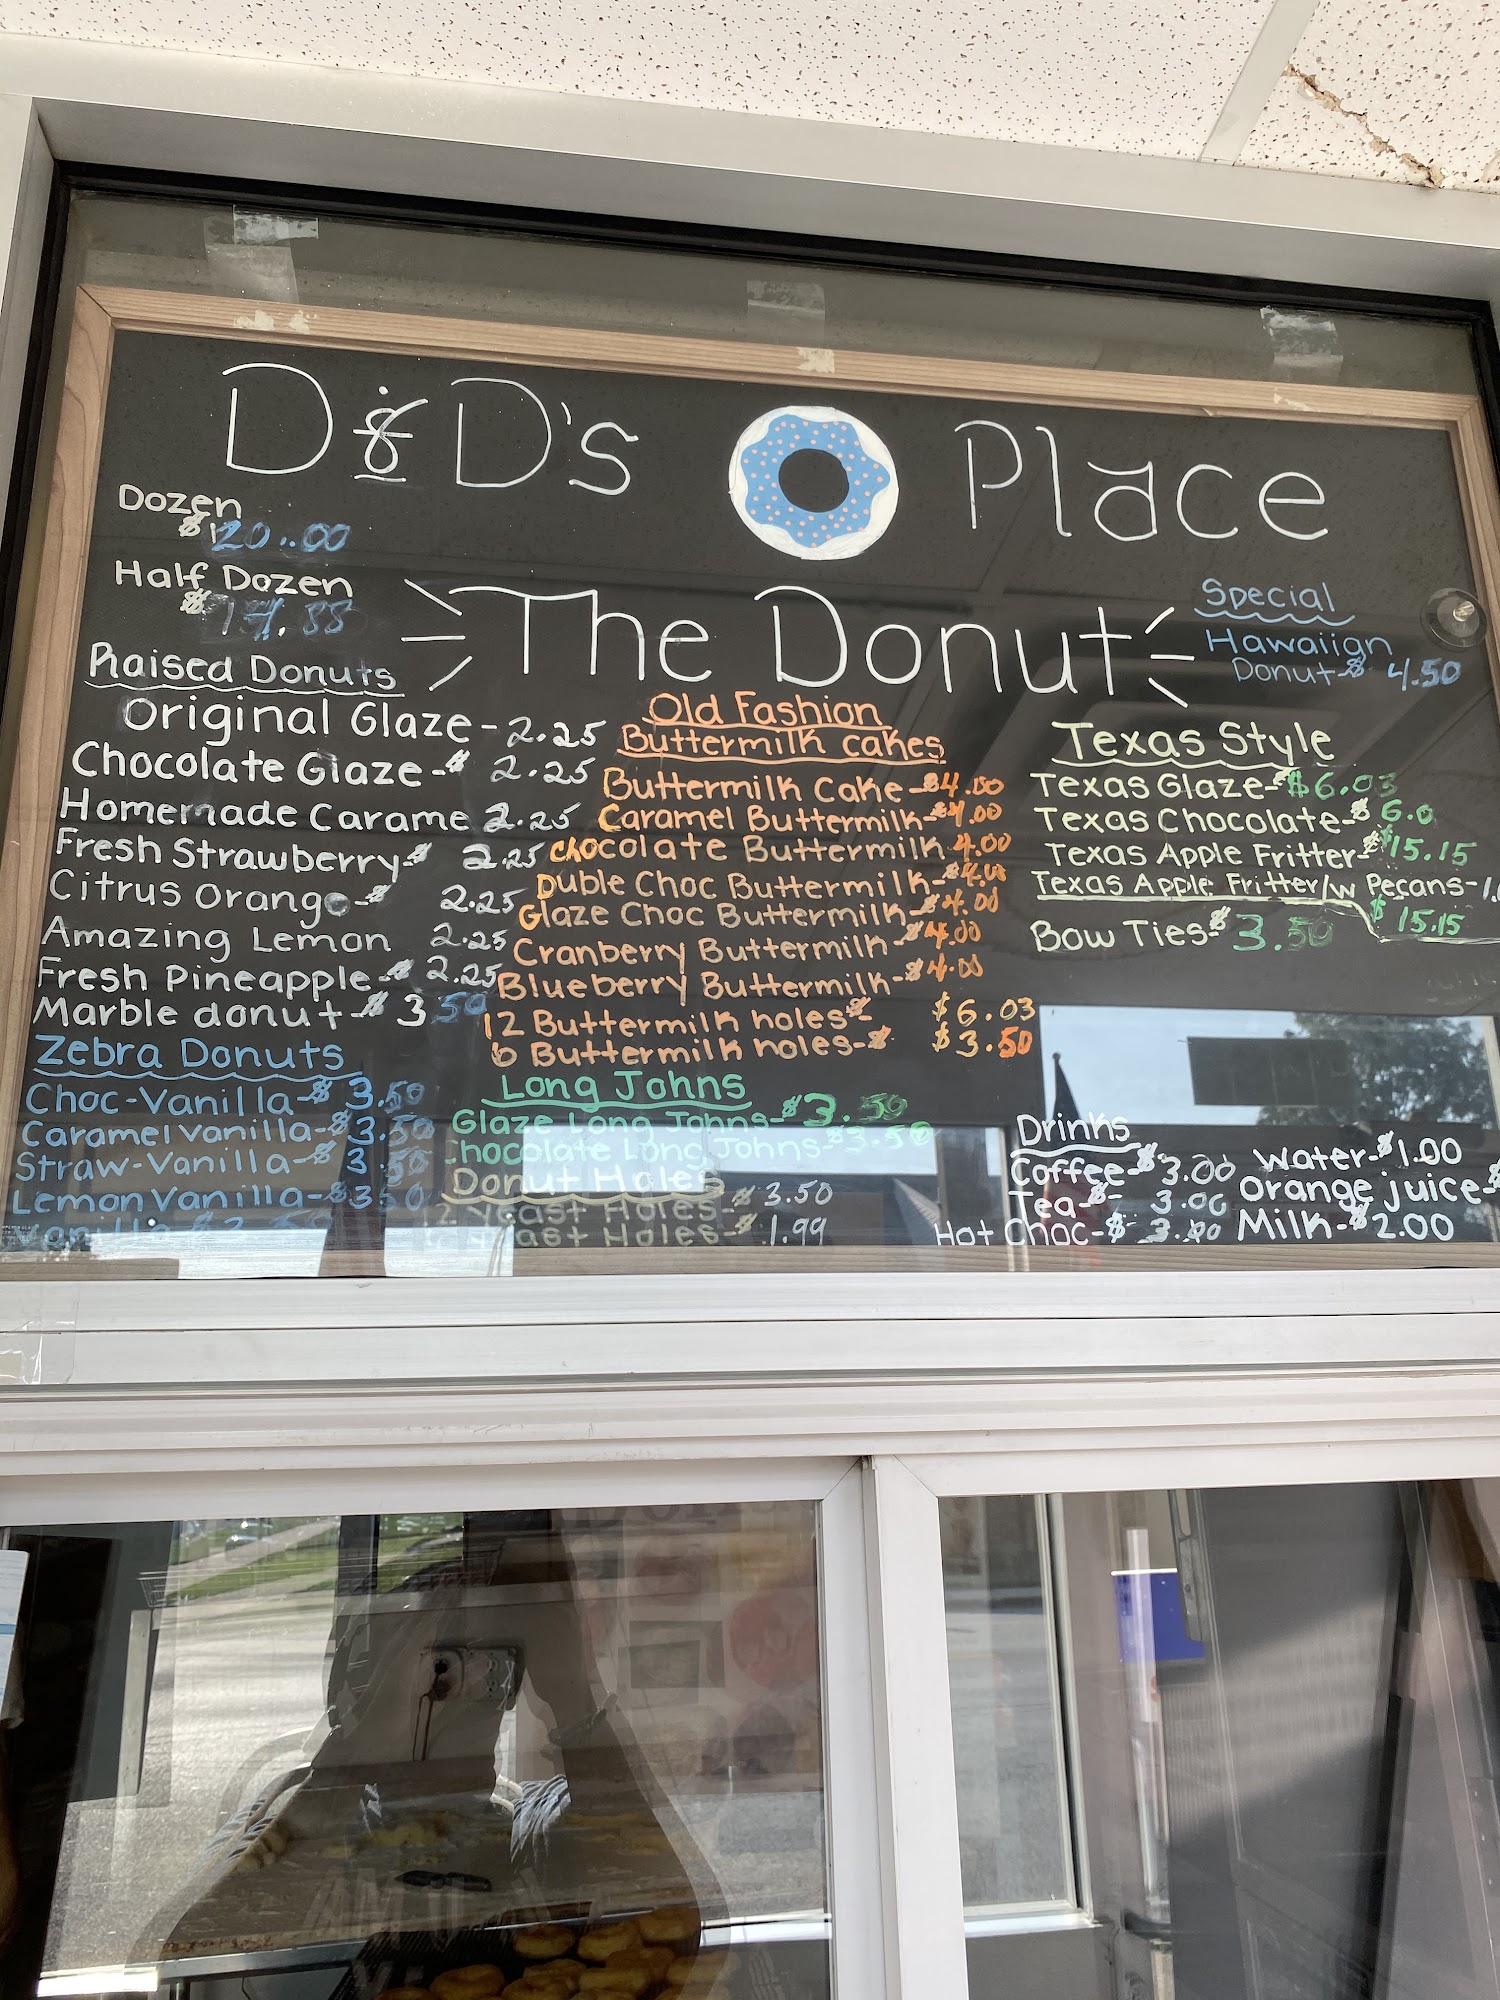 D&D's Place
The Donut
Dozen
$20.00
Half Dozen
$
Special
Hawaiian
Donut-$ 4.50
Raised Donuts
Original Glaze-2.25
Chocolate Glaze-$ 2.25
Homemade Carame 2.25
Fresh Strawberry-$ 2.25
Citrus Orange-$ 2.25
Amazing Lemon 2.25
Fresh Pineapple-$ 2.25
Marble donut-$ 3.50
Zebra Donuts
Choc-Vanilla-$ 3.50
Caramel vanilla-$3.50
Straw-Vanilla-$ 3.50
Lemon Vanilla-$350
Vanilla
Old Fashion
Buttermilk cakes
Buttermilk Cake-$4.00
Caramel Buttermilk-$4.00
Chocolate Buttermilk 4.00
Duble Choc Buttermilk-$4.00
Glaze Choc Buttermilk-$4.00
Cranberry Buttermilk-$4.00
Blueberry Buttermilk-$4.00
12 Buttermilk holes-$ $6.03
6 Buttermilk holes-$ $3.50
Long Johns
Glaze Long Johns-$3.50
Chocolate Long Johns-$3.50
Donut Holes
2 Yeast Holes-$ 3.50
Yeast Holes-$ 1.99
Texas Style
Texas Glaze-$6.03
Texas Chocolate-$6.0
Texas Apple Fritter-$15.15
Texas Apple Fritter/w Pecans-
$15.15
Bow Ties-$3.50
Drinks
Coffee-$3.00
Tea-$- 3.00
Hot Choc-$ 3.00
Water-$1.00
Orange juice-$
Milk-$2.00